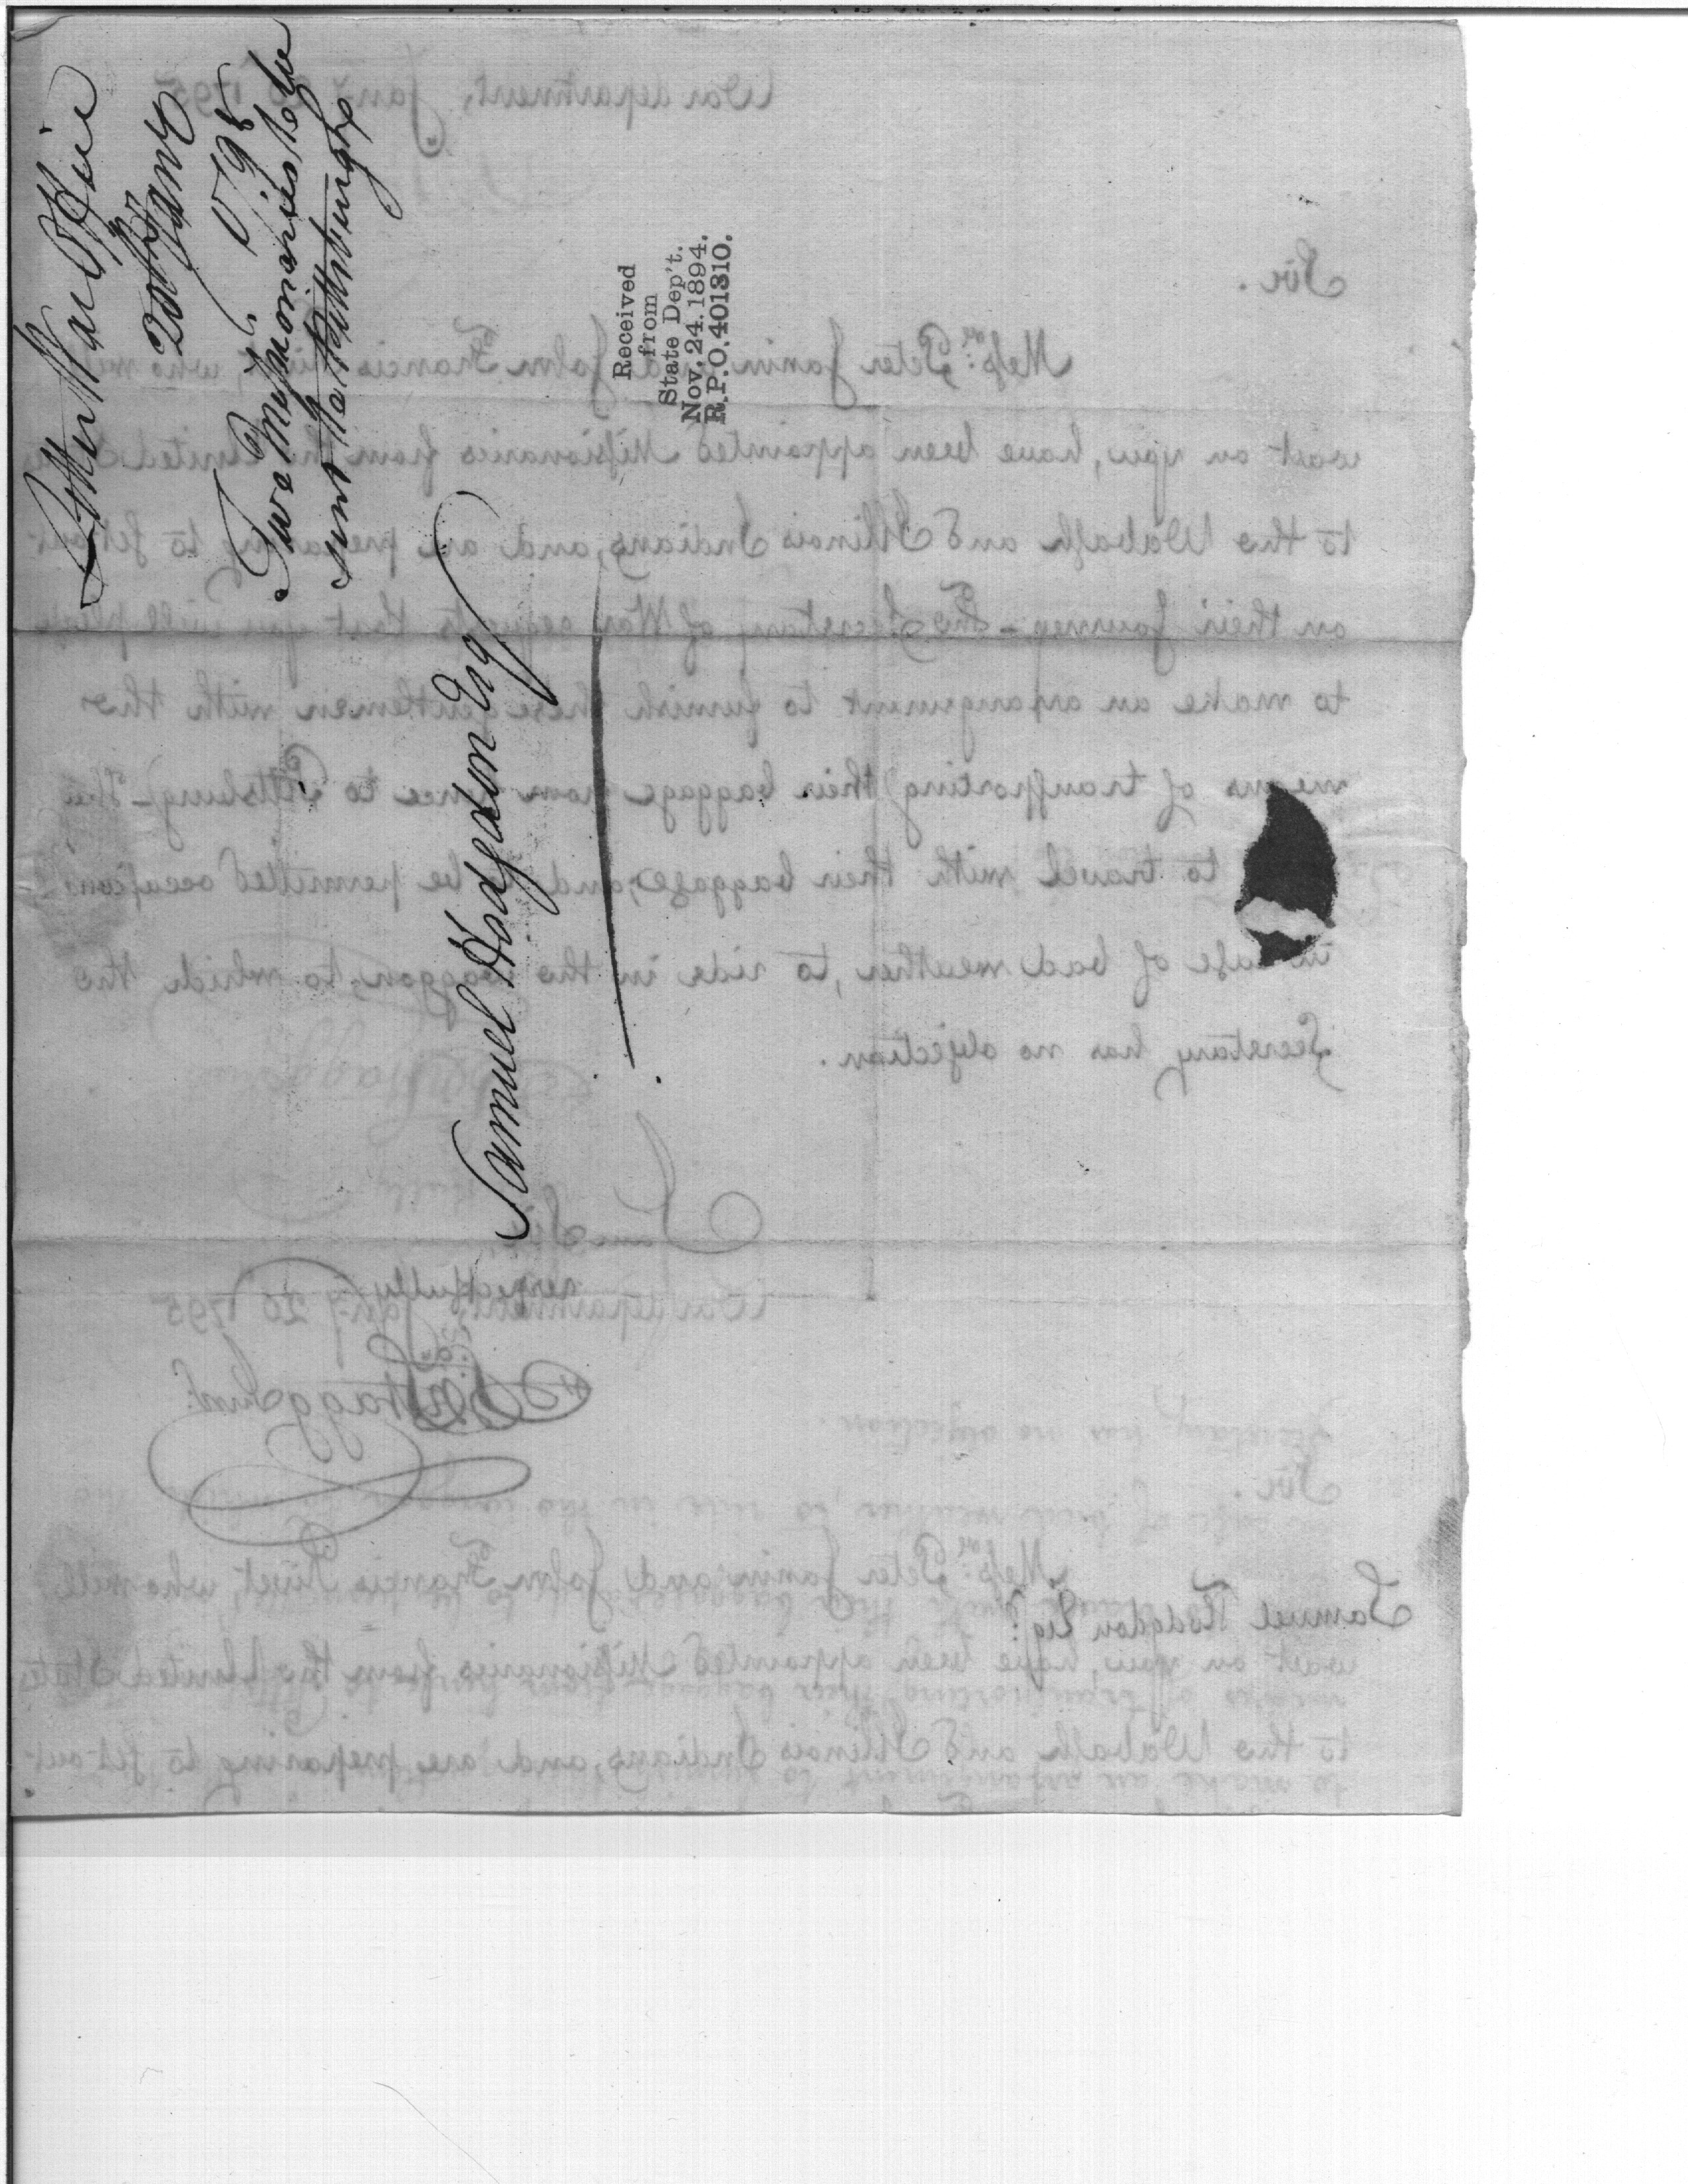 Letter War Office
20th Jany
1795
Two Missionaries to be
sent to Pittsburgh
Received
from
State Dep't.
Nov. 24. 1894.
R.P.O. 401310.
Samuel Hodgdon Esq
War department, Jany 20 1795
Sir.
Messrs: Peter Janin and John Francis Rivet, who will
wait on you, have been appointed Missionaries from the United States
to the Wabash and Illinois Indians, and are preparing to set out
on their Journey - The Secretary of War requests that you will please
to make an arrangement to furnish these gentlemen with the
means of transporting their baggage from hence to Pittsburg - They
to travel with their baggage, and to be permitted occasionally
in case of bad weather, to ride in the waggon, to which the
Secretary has no objection.
I am Sir
respectfully
Jno Stagg Junr.
Samuel Hodgdon Esq:
War department, Jany 20 1795
Sir.
Messrs: Peter Janin and John Francis Rivet, who will
wait on you, have been appointed Missionaries from the United States
to the Wabash and Illinois Indians, and are preparing to set out